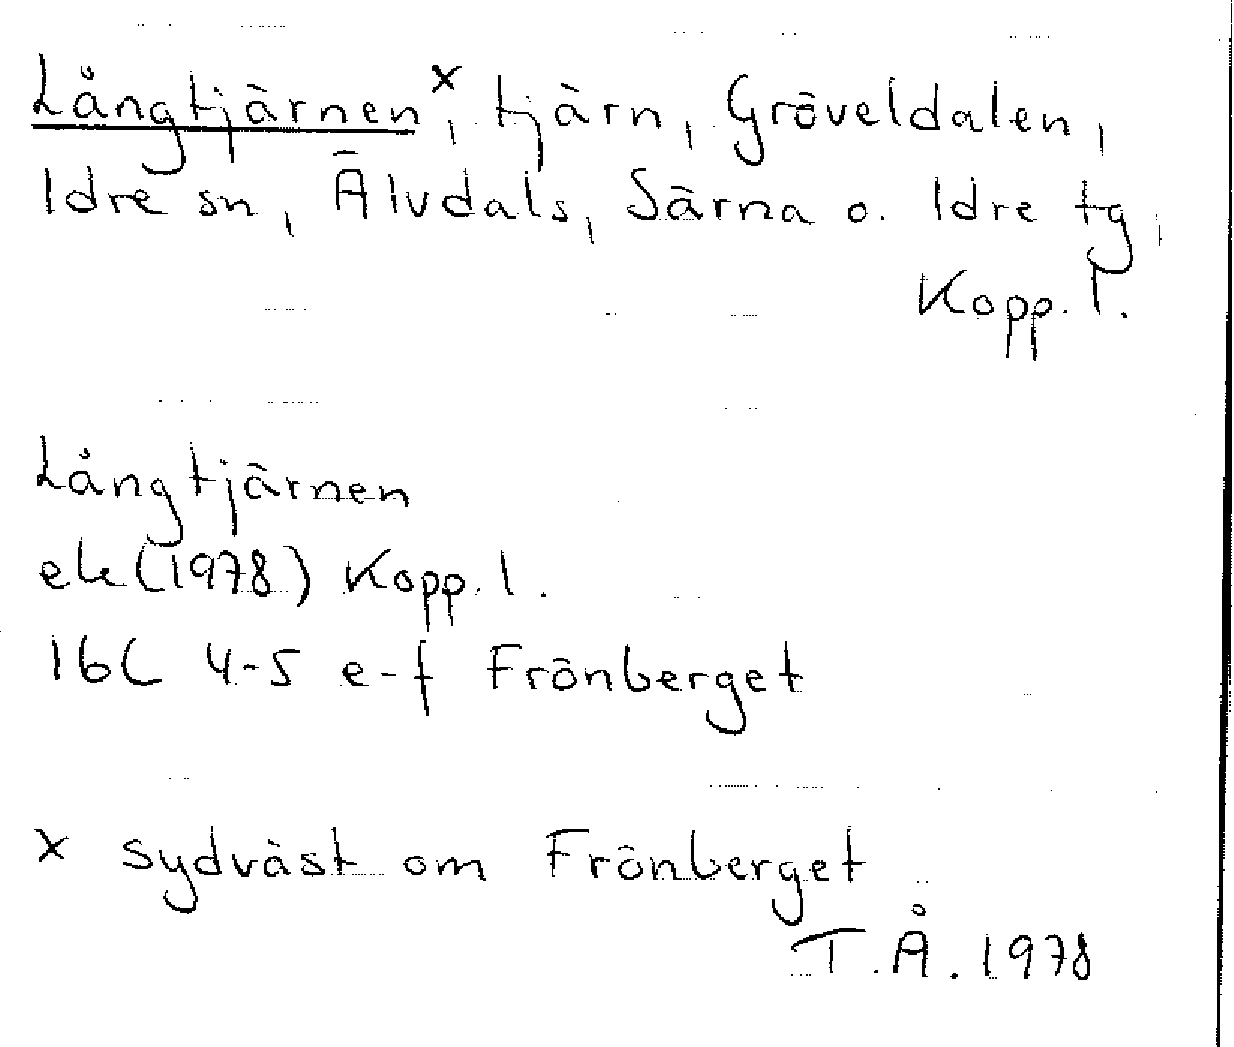 Långtjärnen x, tjärn, Gröveldalen,
Idre sn, Älvdals, Särna o. Idre tg,
Kopp. l.
Långtjärnen
ek (1978) Kopp. l.
16C 4-5 e-f Frönberget
x sydväst om Frönberget
T.Å. 1978